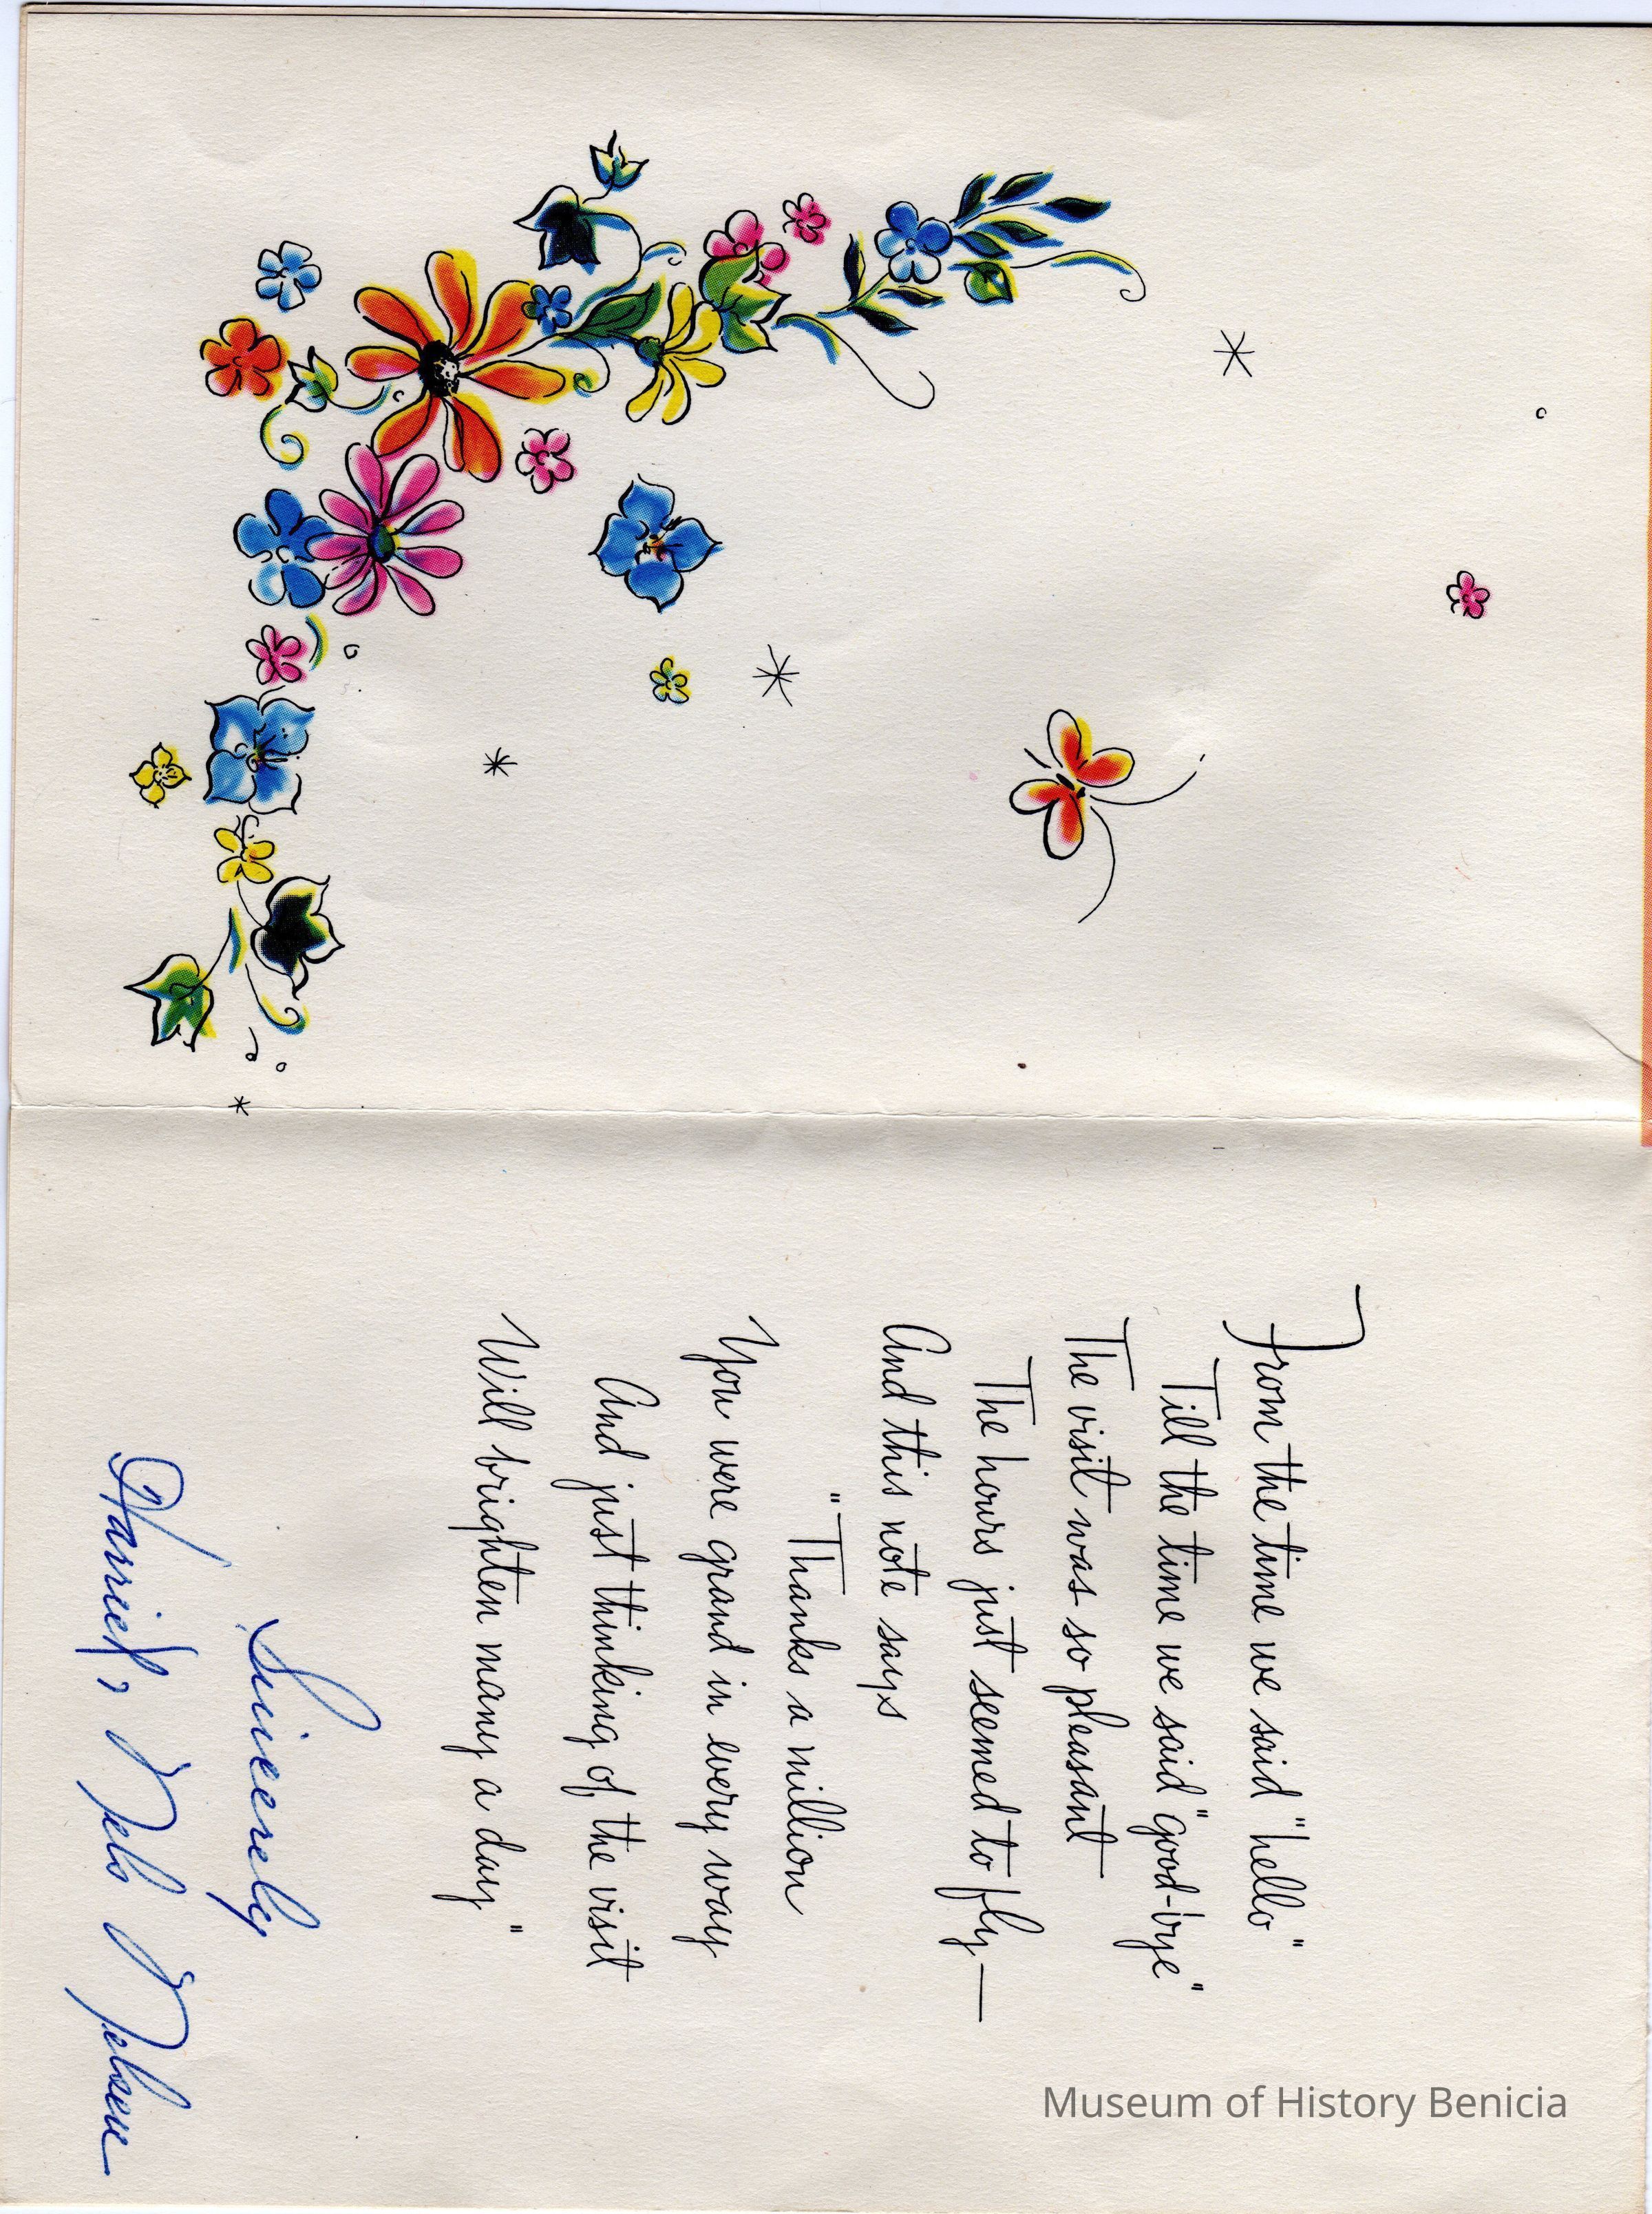 From the time we said "hello"
Till the time we said "good-bye"
The visit was so pleasant
The hours just seemed to fly—
And this note says
"Thanks a million
You were grand in every way
And just thinking of the visit
Will brighten many a day"
Sincerely
Harriet, Nels Nelsen
Museum of History Benicia